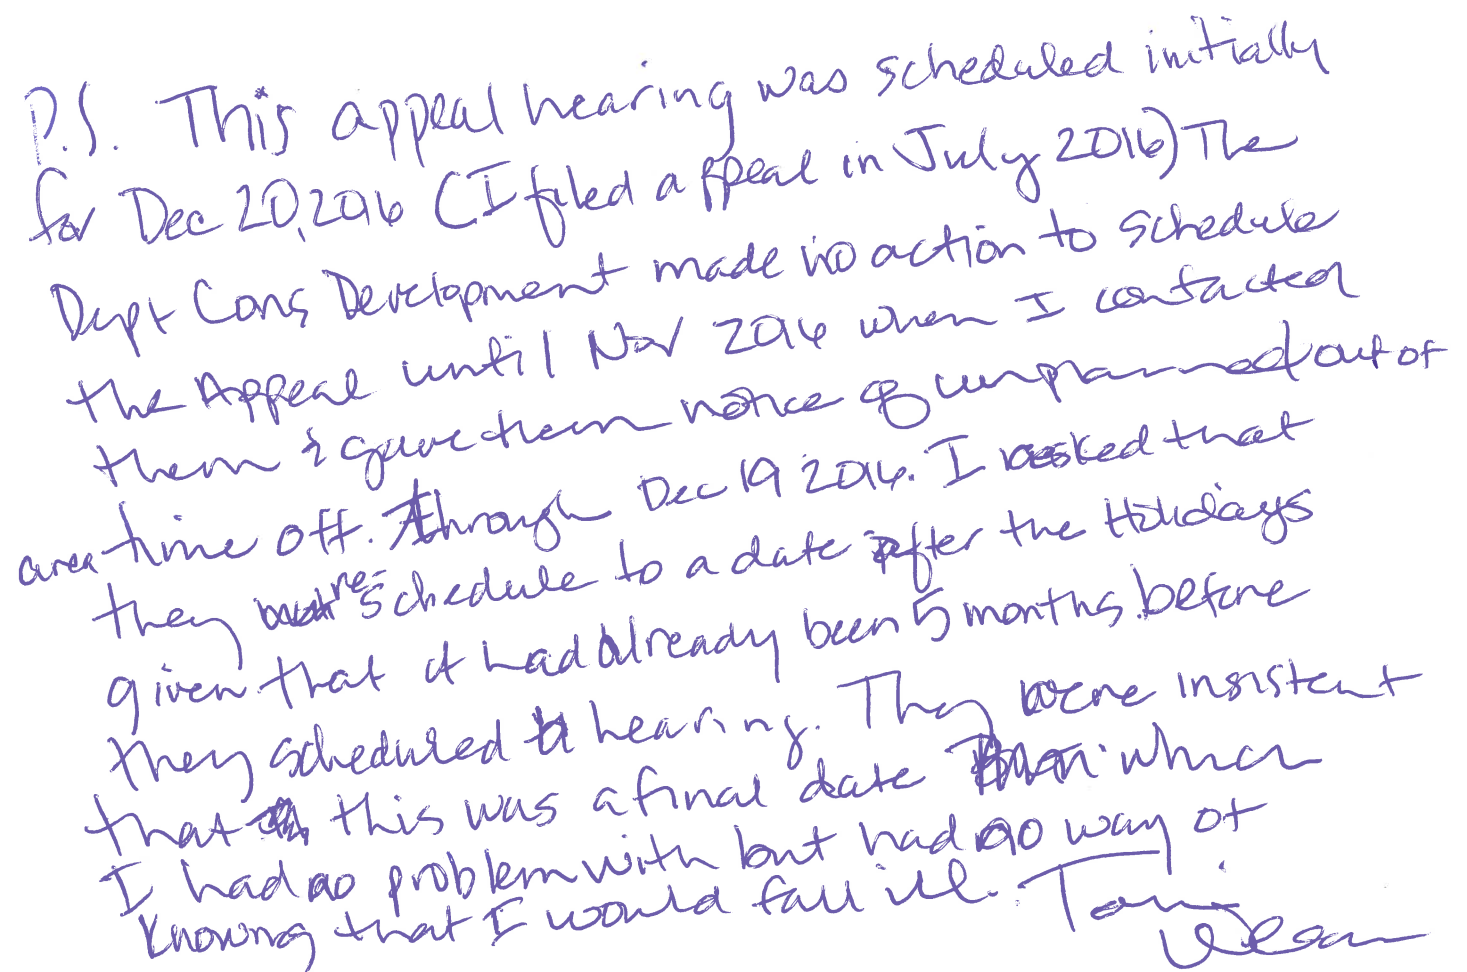 P.S. This appeal hearing was scheduled initially
for Dec 20, 2016 (I filed appeal in July 2016) The
Dept Cons Development made no action to schedule
the Appeal until Nov 2016 when I contacted
them & gave them notice of unplanned out of
area time off. Through Dec 19 2016. I asked that
they re-schedule to a date after the Holidays
given that it had already been 5 months before
they scheduled hearing. They were insistent
that this was a final date which
I had no problem with but had no way of
knowing that I would fall ill. Tami